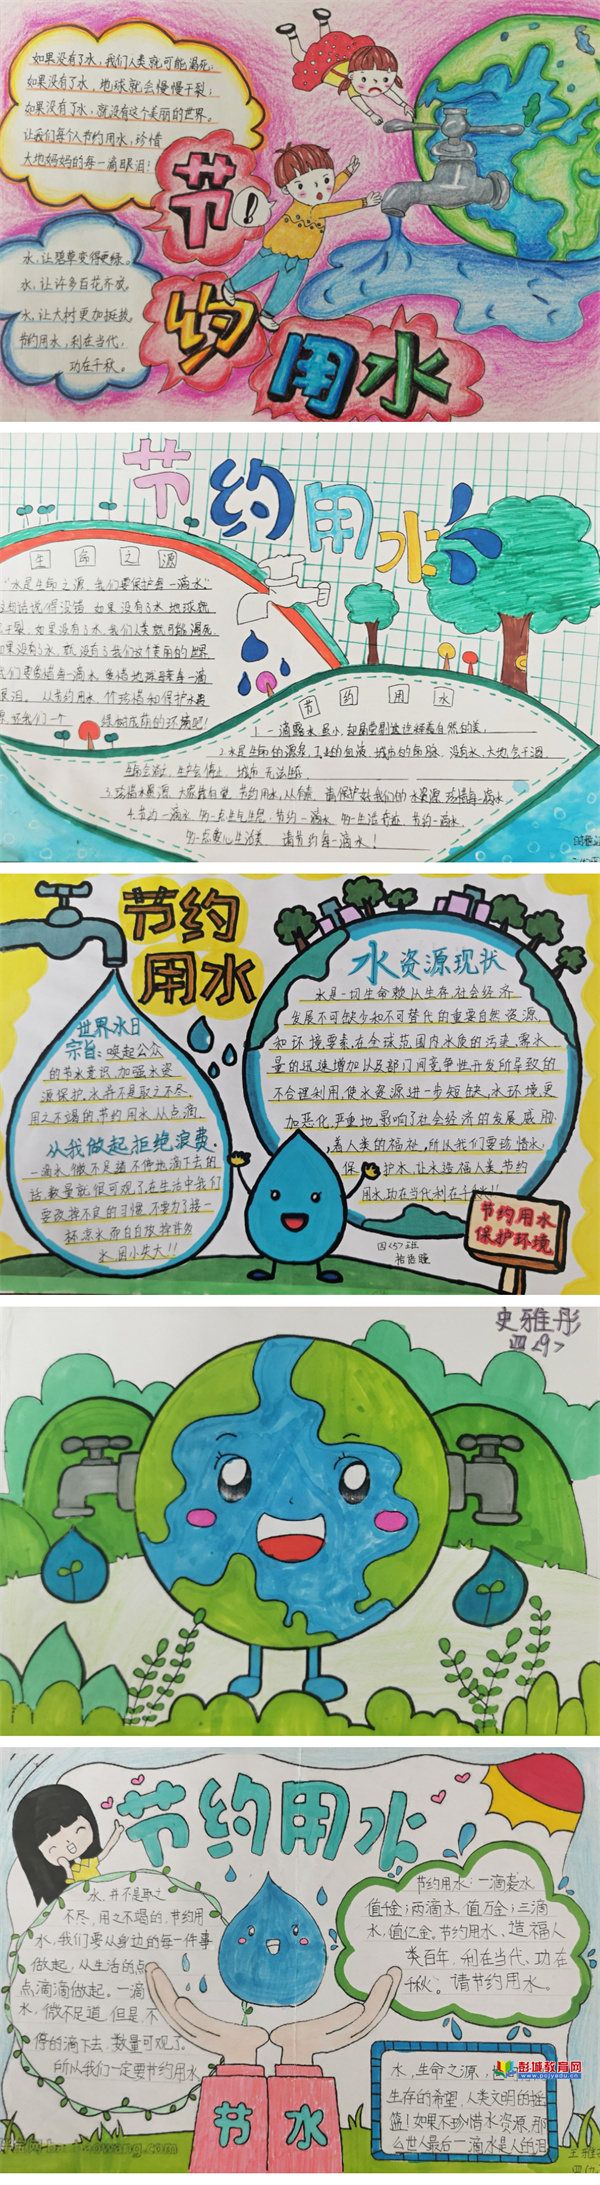 如果没有了水，我们人类就可能渴死；
如果没有了水，地球就会慢慢干裂；
如果没有了水，就没有这个美丽的世界。
让我们每个人节约用水，珍惜
大地妈妈的每一滴眼泪！
节！
约用水
水，让碧草变得更绿。
水，让许多百花齐放。
水，让大树更加挺拔。
节约用水，利在当代，
功在千秋。
节约用水
生命之源
"水是生命之源，我们要保护每一滴水。"
如果没有了水，地球就
干裂，如果没有了水，我们人类就可能渴死，
果没有了水，就没有我们这个美丽的世界
节约用水
1.一滴露水虽小，却
2.水是生命的源泉，工业的血液，城市的命脉。没有水，大地会干涸
3.珍惜水资源，
节约用水，从
请保护好我们的水资源，珍惜每一滴水
4.节约一滴水
请节约每一滴水！
节约
用水
世界水日
宗旨：唤起公众
的节水意识，加强水资
源保护。水并不是取之不尽，
用之不竭的，节约用水，从点滴，
从我做起拒绝浪费．
一滴水，微不足道，不停地滴下去的
话，数量就很可观了，在生活中我们
要改掉不良的习惯，不要为了接一
杯凉水而白白放掉许多
水，因小失大！！
水资源现状
水是一切生命赖以生存，社会经济
发展不可缺少和不可替代的重要自然资源，
和环境要素，在全球范围内水质的污染，需水
量的迅速增加以及部门间竞争性开发所导致的
不合理利用，使水资源进一步短缺，水环境更
加恶化，严重地影响了社会经济的发展威胁，
着人类的福祉，所以我们要珍惜水，
保护水，让水造福人类，节约
用水，功在当代，利在千秋！！
节约用水
保护环境
四<5>班
史雅彤
四<9>
节约用水
水，并不是取之
不尽，用之不竭的，节约用
水，我们要从身边的每一件事
做起，从生活的点
点滴滴做起。一滴
水，微不足道，但是，不
停的滴下去，数量可观了。
所以我们一定要节约用水
节约用水：一滴
水
值千金；两滴水，值万金；三滴
水，值亿金。节约用水，造福人
类百年，利在当代、功在
千秋。请节约用水。
节水
水，生命之源，
生存的希望，人类文明的摇
篮！如果不珍惜水资源，那
么世人最后一滴水是人的泪
彭城教育网
www.pcjyedu.cn